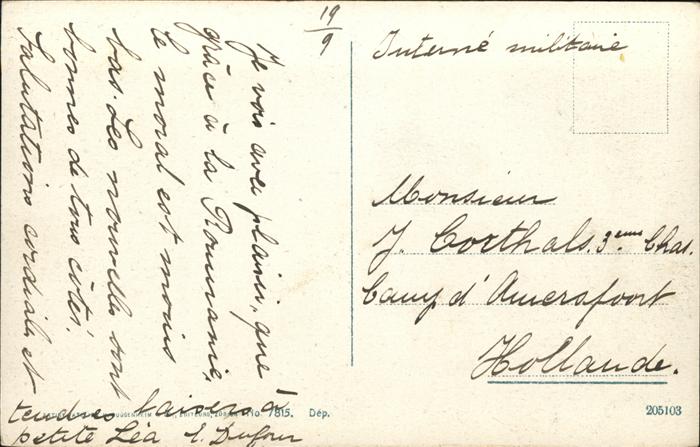 19/9
Je vois avec plaisir, que
grâce à la Roumanie,
le moral est moins
bas. Les nouvelles sont
bonnes de tous côtés.
Salutations cordiales et
tendres baisers à
petite Léa E. Dufour
Interné militaire
Monsieur
J. Corthals. 3eme Chas.
Camp d'Amersfoort
Hollande.
7815. Dép.
205103